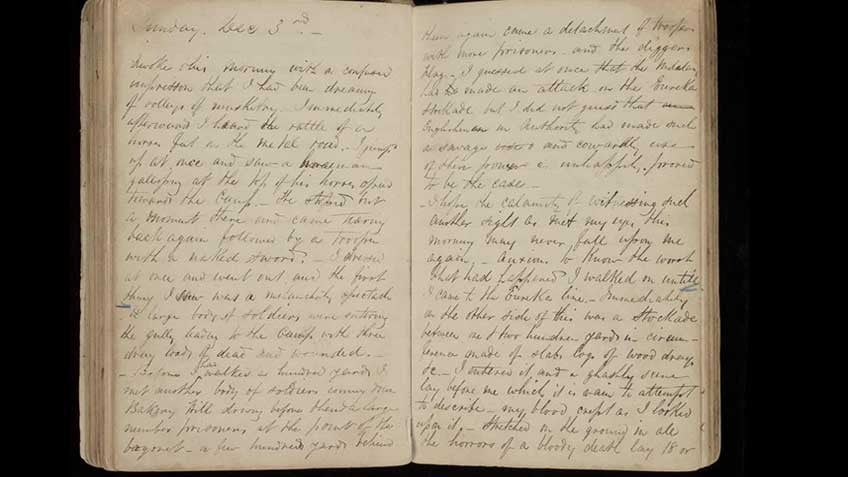 Sunday. Dec 3rd. –
Awoke this morning with a confused
impression that I had been dreaming
of volleys of musketry – Immediately
afterward I heard the rattle of a
horses feet on the metal road. – I jumped
up at once and saw a horseman
galloping at the top of his horses speed
towards the Camp. – He stopped but
a moment there and came tearing
back again followed by a trooper
with a naked sword. – I dressed
at once and went out and the first
thing I saw was a melancholy spectacle
– A large body of soldiers were entering
the gully leading to the Camp with three
dray loads of dead and wounded. –
– Before I had walked a hundred yards I
met another body of soldiers coming down
Bakery Hill driving before them a large
number prisoners at the point of the
bayonet – a few hundred yards behind
them again came a detachment of troopers
with more prisoners – and the diggers
flag – I guessed at once that the Military
had made an attack on the Eureka
stockade but I did not guess that
Englishmen in Authority had made such
a savage and cowardly use
of their power as unhappily proved
to be the case –
– I hope the calamity of witnessing such
another sight as met my eyes this
morning may never fall upon me
again. – Anxious to know the worst
that had happened I walked on untill
I came to the Eureka line. – Immediately
on the other side of this was a Stockade
between one & two hundred yards in circum-
ference made of slabs logs of wood drays
&c – I entered it and a ghastly scene
lay before me which it is vain to attempt
to describe – my blood crept as I looked
upon it. – Stretched on the ground in all
the horrors of a bloody death lay 18 or